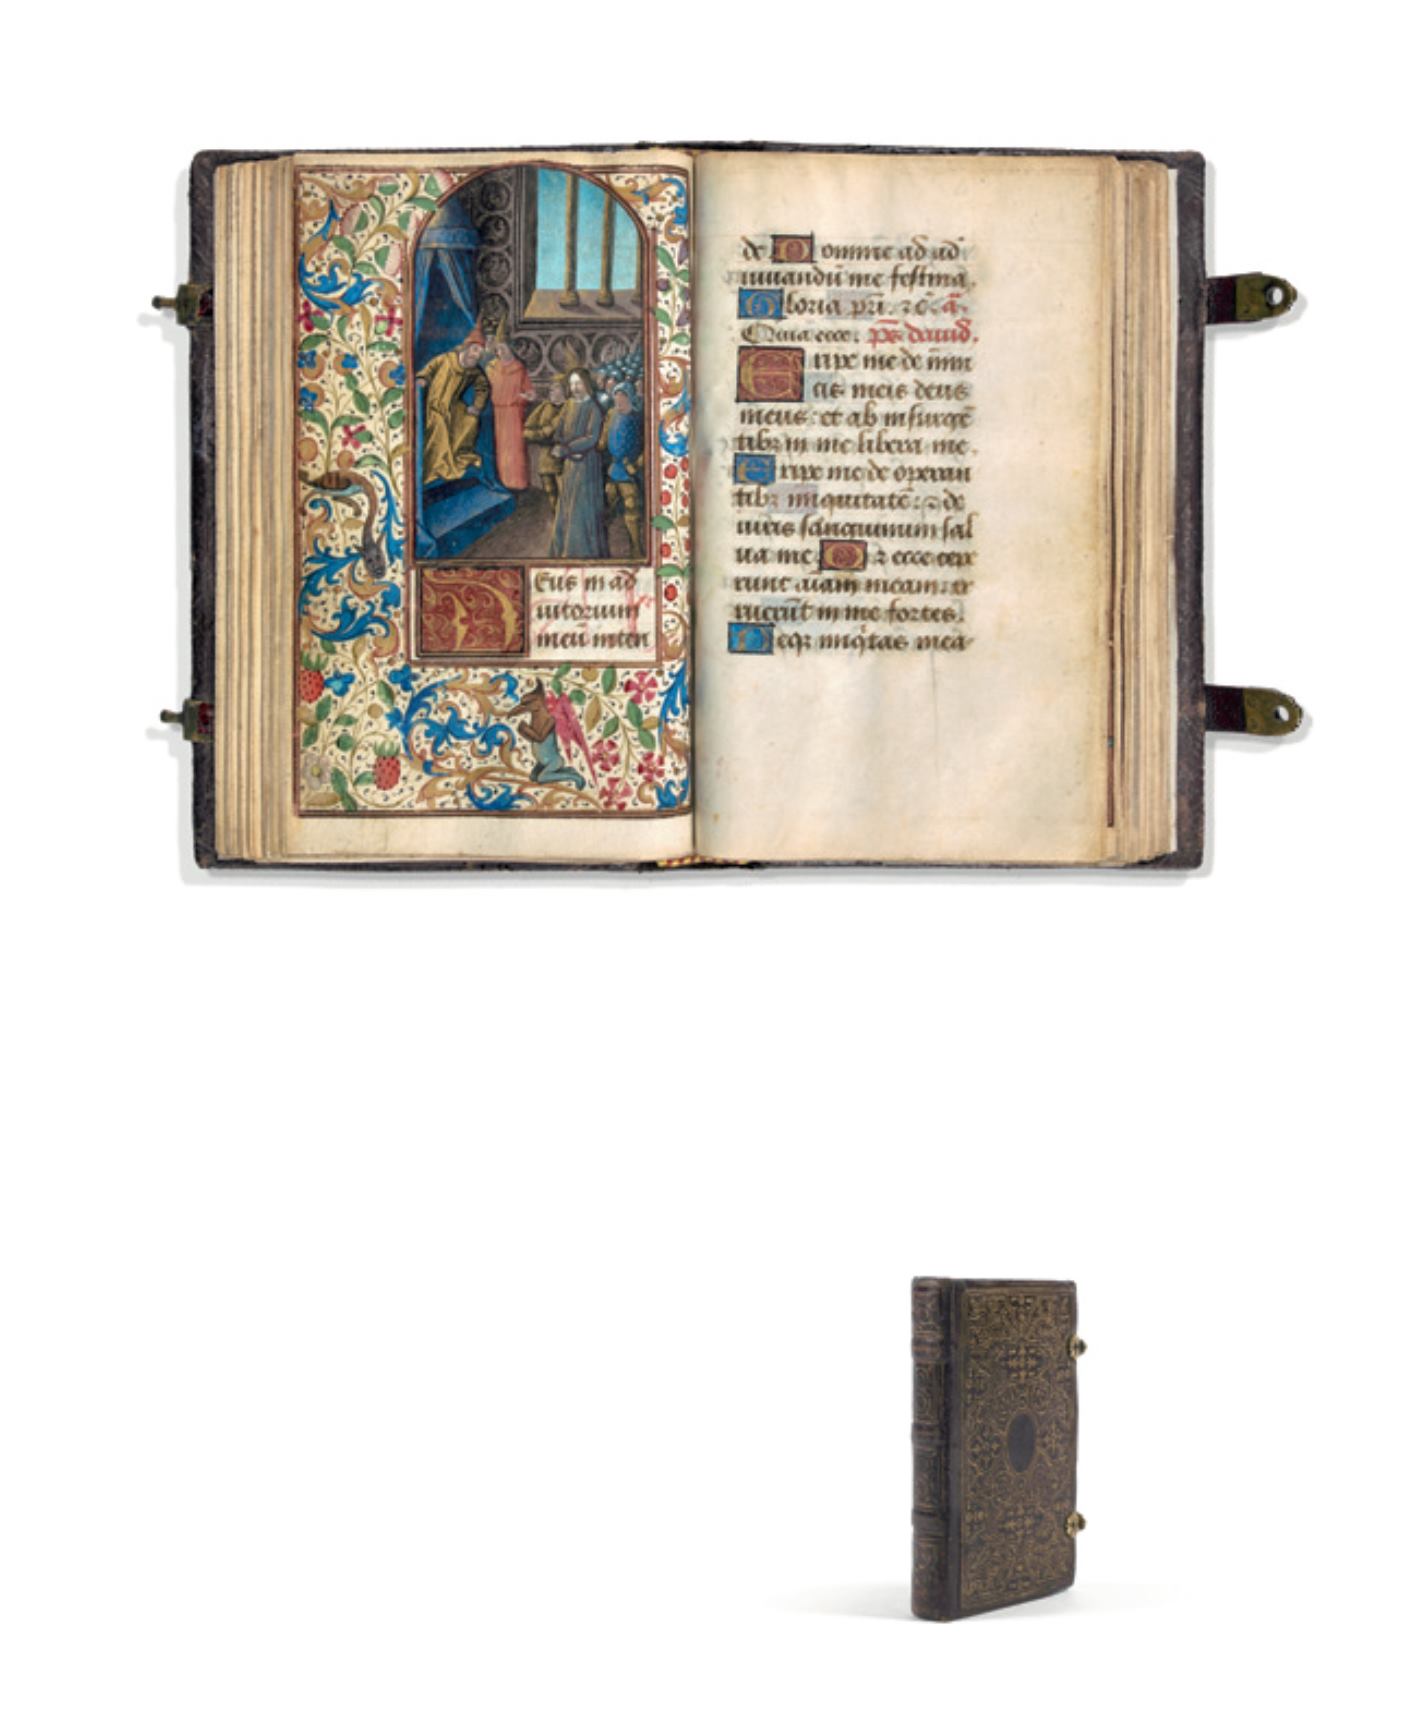 Deus in ad
iutorium
meū inten
de Domine ad ad
iuuandū me festina.
Gloria pr̄i. ⁊ c̄. a͞.
Quia ecce. ps̄ dauid.
Eripe me de inim
icis meis deus
meus: et ab insurgē
tibꝫ in me libera me.
Eripe me de operan
tibꝫ iniquitatē: ⁊ de
uiris sanguinum sal
ua me Qꝫ ecce cepe
runt aīam meam: ir
ruerūt in me fortes.
Neqꝫ iniq̇tas mea